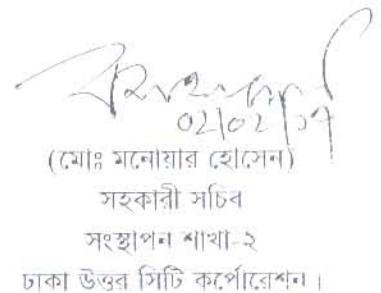 ০২/০২/১৭
(মোঃ মনোয়ার হোসেন)
সহকারী সচিব
সংস্থাপন শাখা-২
ঢাকা উত্তর সিটি কর্পোরেশন।